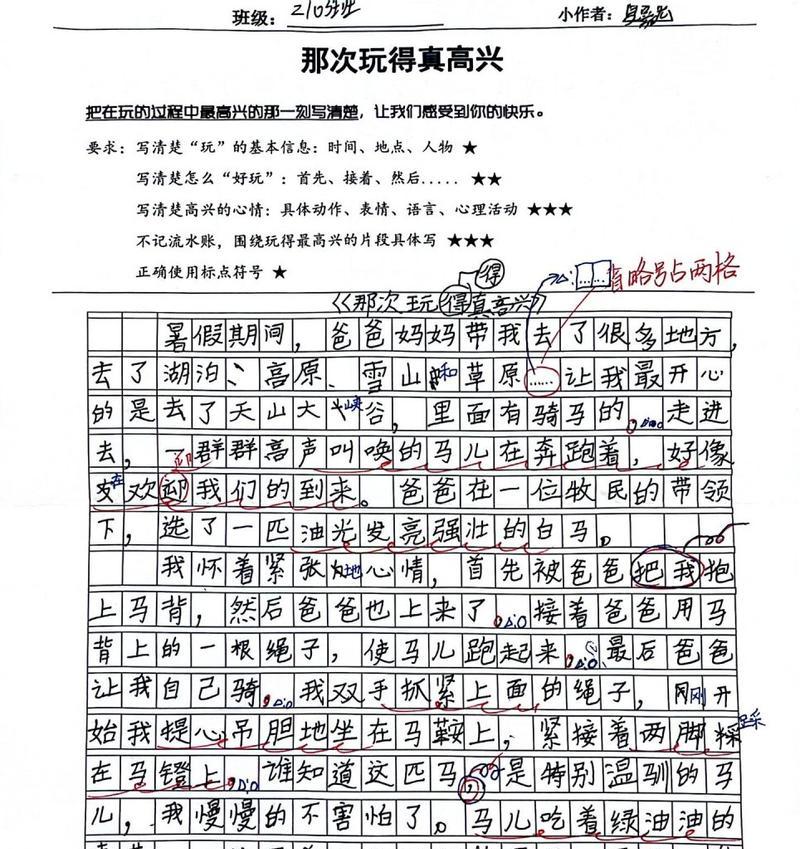 班级：210班 小作者：
那次玩得真高兴
把在玩的过程中最高兴的那一刻写清楚，让我们感受到你的快乐。
要求：写清楚“玩”的基本信息：时间、地点、人物 ★
写清楚怎么“好玩”：首先、接着、然后..... ★★
写清楚高兴的心情：具体动作、表情、语言、心理活动 ★★★
不记流水账，围绕玩得最高兴的片段具体写 ★★★
正确使用标点符号 ★
得
…… 省略号占两格
《那次玩得真高兴》
暑假期间，爸爸妈妈带我去了很多地方，
去了湖泊、高原、雪山和草原……让我最开心
的是去了天山大峡谷，里面有骑马的。走进
去，一群群高声叫唤的马儿在奔跑着，好像
在欢迎我们的到来。爸爸在一位牧民的带领
下，选了一匹油光发亮强壮的白马。
我怀着紧张地心情，首先被爸爸把我抱
上马背，然后爸爸也上来了。接着爸爸用马
背上的一根绳子，使马儿跑起来。最后爸爸
让我自己骑。我双手抓紧上面的绳子，刚开
始我提心吊胆地坐在马鞍上，紧接着两脚踩
在马镫上。谁知道这匹马，是特别温驯的马
儿，我慢慢的不害怕了。马儿吃着绿油油的